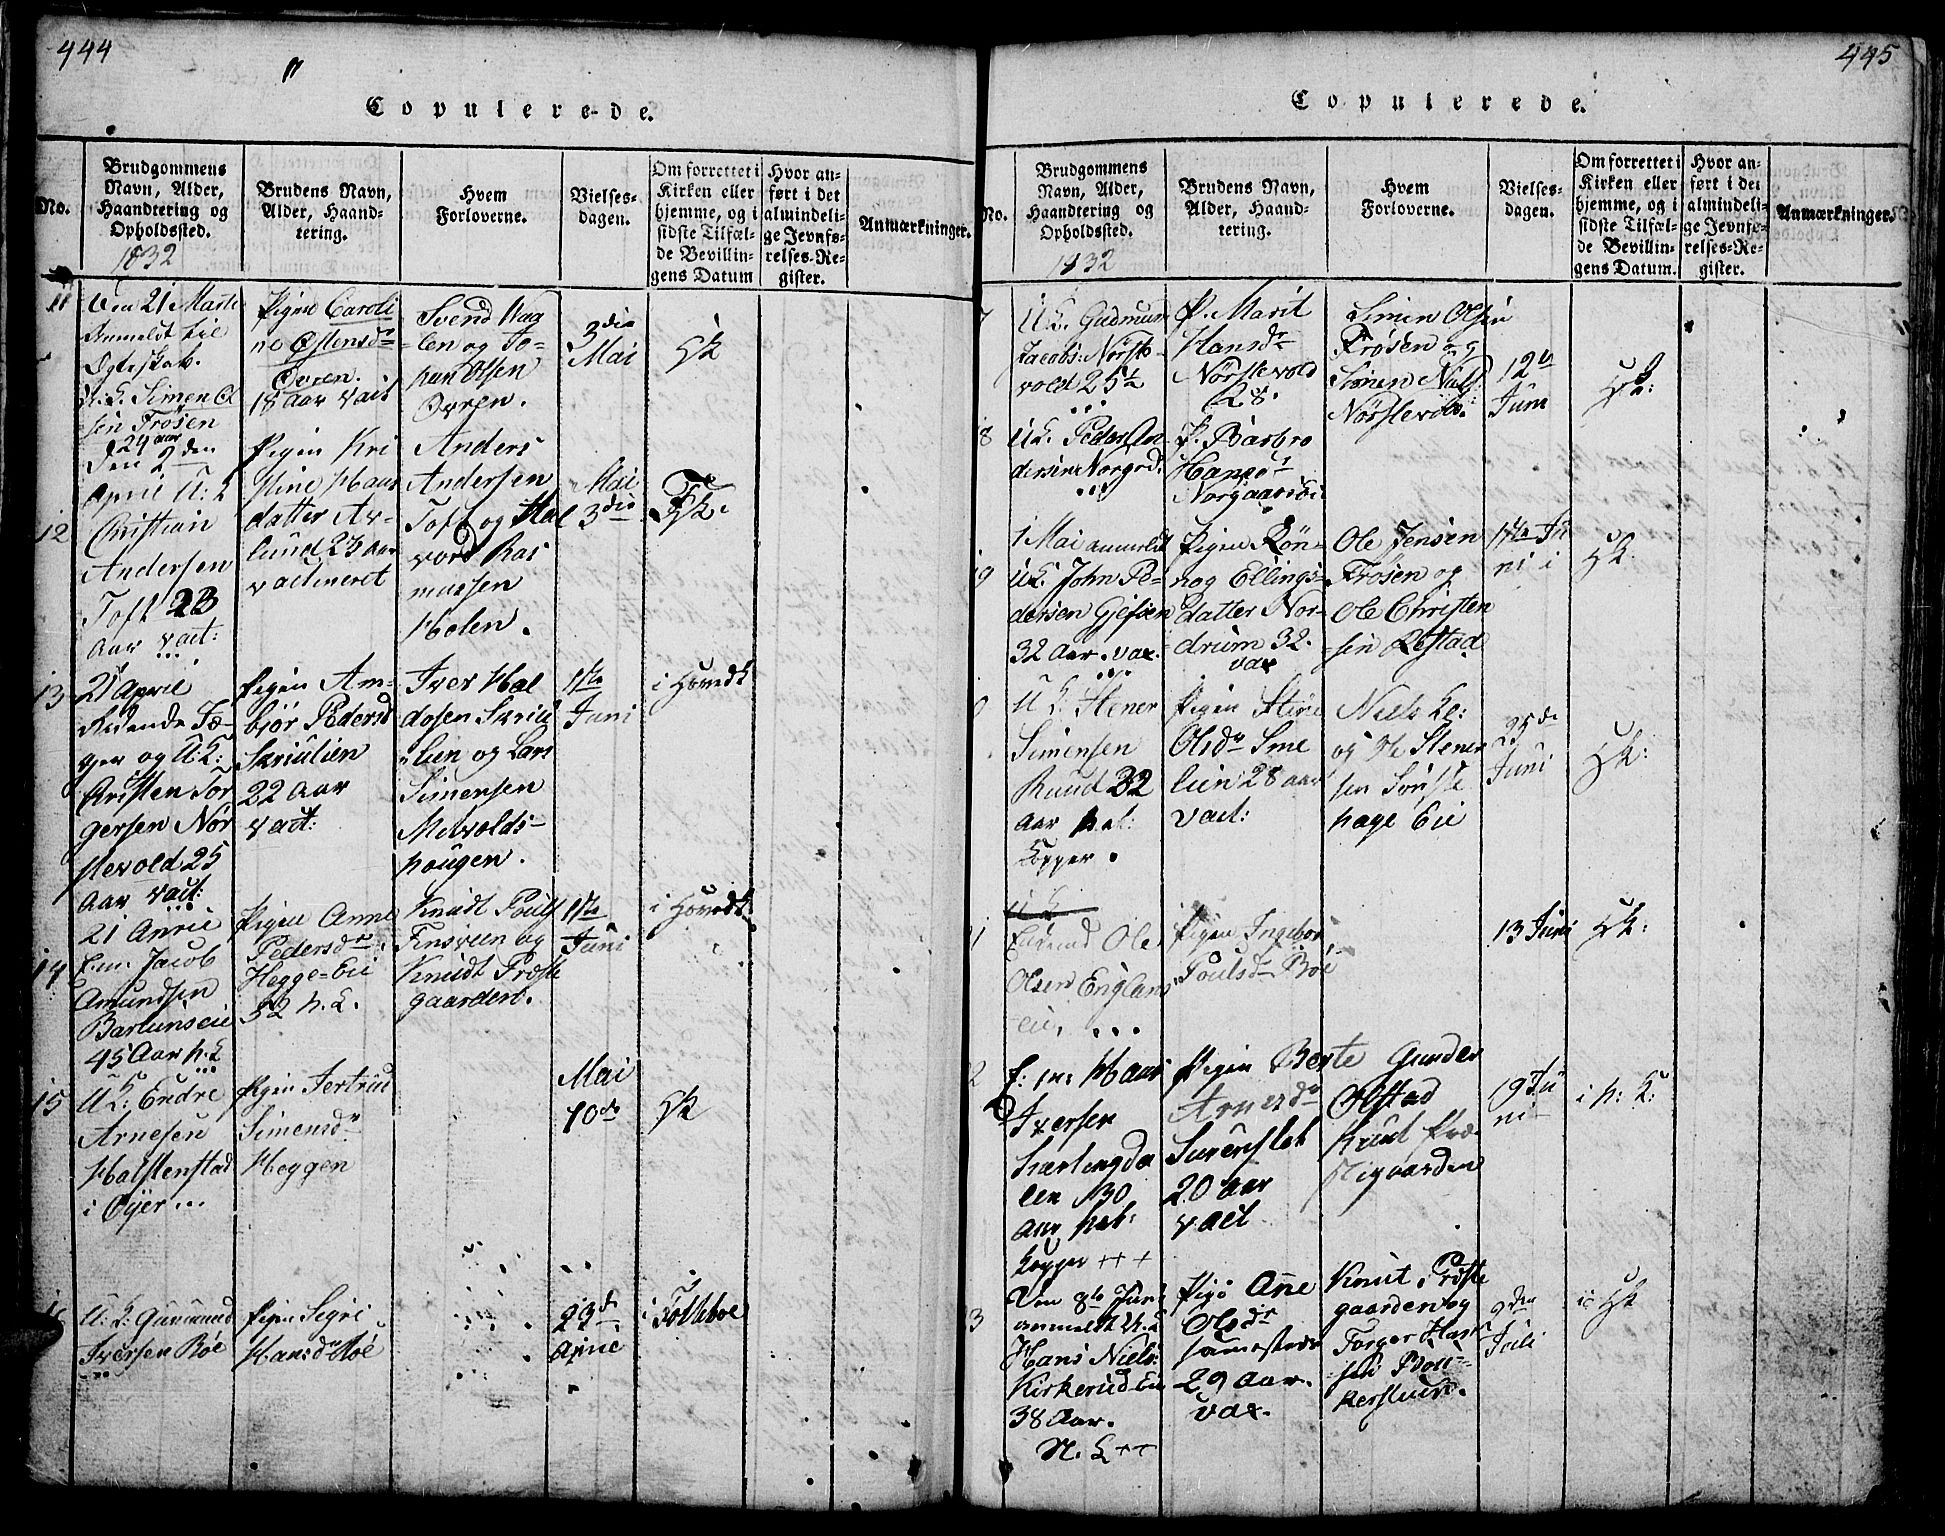 444
Copulerede.
No.
Brudgommens
Navn, Alder,
Haandtering og
Opholdssted.
1832
Brudens Navn,
Alder, Haand-
tering.
Hvem
Forloverne.
Vielses-
dagen.
Om forrettet i
Kirken eller
hjemme, og i
sidste Tilfæl-
de Bevillin-
gens Datum
Hvor an-
ført i det
almindeli-
ge Jevnfø-
relses-Re-
gister.
Anmærkninger.
11
Den 21 Marts
Anmeldt til
Ægteskab.
U. K. Simen Ol
sen Frøsen
24 aar
Pigen Caroli
ne Østensdr
Øvren.
18 aar vaxt
Svend Hag
len og Jo-
han Olsen
Øvren.
3die
Mai
HK
12
Den 2den
April U: K
Christian
Andersen
Toft 23
Aar vact:
Pigen Kri
stine Hans
datter Av-
lund 23 aar
vaccineret
Anders
Andersen
Toft og Hal
vord Ras
mussen
Holen.
Mai
3die
HK.
13
21 April
Ridende Jæ-
ger og U:K:
Christen Tor
gersen Nør
stevold 25
Aar vact:
Pigen Am-
bjør Pedersd
Skriulien
22 aar
Vact:
Iver Hal
dosen Skriu
lien og Lars
Simensen
Melvolds-
hougen.
1ste
Juni
i Hovedk
14
21 April
E.m. Jacob
Amundsen
Barlunseie
45 Aar h. K
Pigen Anne
Pedersdr
Hegge-Eie
32 h. K.
Knudt Pouls
Finsveen og
Knudt Præste
gaarden.
1ste
Juni
i Hovedk.
15
U K: Endre
Arnesen
Halstenstad
i Øyer
Pigen Jertrud
Simensdr
Heggen
Mai
10de
HK
16
U. K: Gunmund
Iversen Bøe
Pigen Segri
Hansdr Bøe
23d
Aprie
i Folleboe
445
Copulerede.
No.
Brudgommens
Navn, Alder,
Haandtering og
Opholdssted.
1832
Brudens Navn,
Alder, Haand-
tering.
Hvem
Forloverne.
Vielses-
dagen.
Om forrettet i
Kirken eller
hjemme, og i
sidste Tilfæl-
de Bevillin-
gens Datum.
Hvor an-
ført i det
almindeli-
ge Jevnfø-
relses-Re-
gister.
Anmærkninger.
7
U K. Gudmun
Jacobs: Nørste-
vold 25 1/2
P. Marit
Hansdr
Nørstevold
28.
Simen Olsen
Frøsen og
Simen Niels
Nørstevold.
12te
Juni
HK:
8
U K. Peder An
dersen Norgrd.
P. Barbro
Hansdr
Norgaarsei
9
1 Mai anmeldt
U K. John Pe-
dersen Gjefsen
32 Aar. vax.
Pigen Røn-
nog Ellings-
datter Nor-
drum 32.
vax
Ole Jensen
Frøsen og
Ole Christen
sen Restad
17te Ju
ni i
HK:
0
U K Stener
Simensen
Ruud 32
Aar hat:
Kopper.
Pigen Siri
Olsdr Sme
lien 28 aar
Vact:
Niels
og Ole Stener
sen Sørste
hage Eie
25de
Juni
HK:
1
U K
Enkemd Ole
Olsen Englans
eie
Pigen Ingebor
Poulsdr Bøe
13 Juni
HK:
2
E: m: Hans
Iversen
20 Aar hat:
Kopper +++
Pigen Berte
Arnesdr
Surenslet
20 aar
vact
Gunder
Olstad
Knud Præ
stigaarden
19 Ju
ni
i h: K:
3
Den 8de Juni
anmeldt U. K
Hans Niels:
Kirkerud Eie
38 Aar.
N. K ++
Pige Ane
Olsdr
sammesteds
29 Aar.
vax.
Knut Præste
gaarden og
Torger Han
sen
9den
Juli
i HK